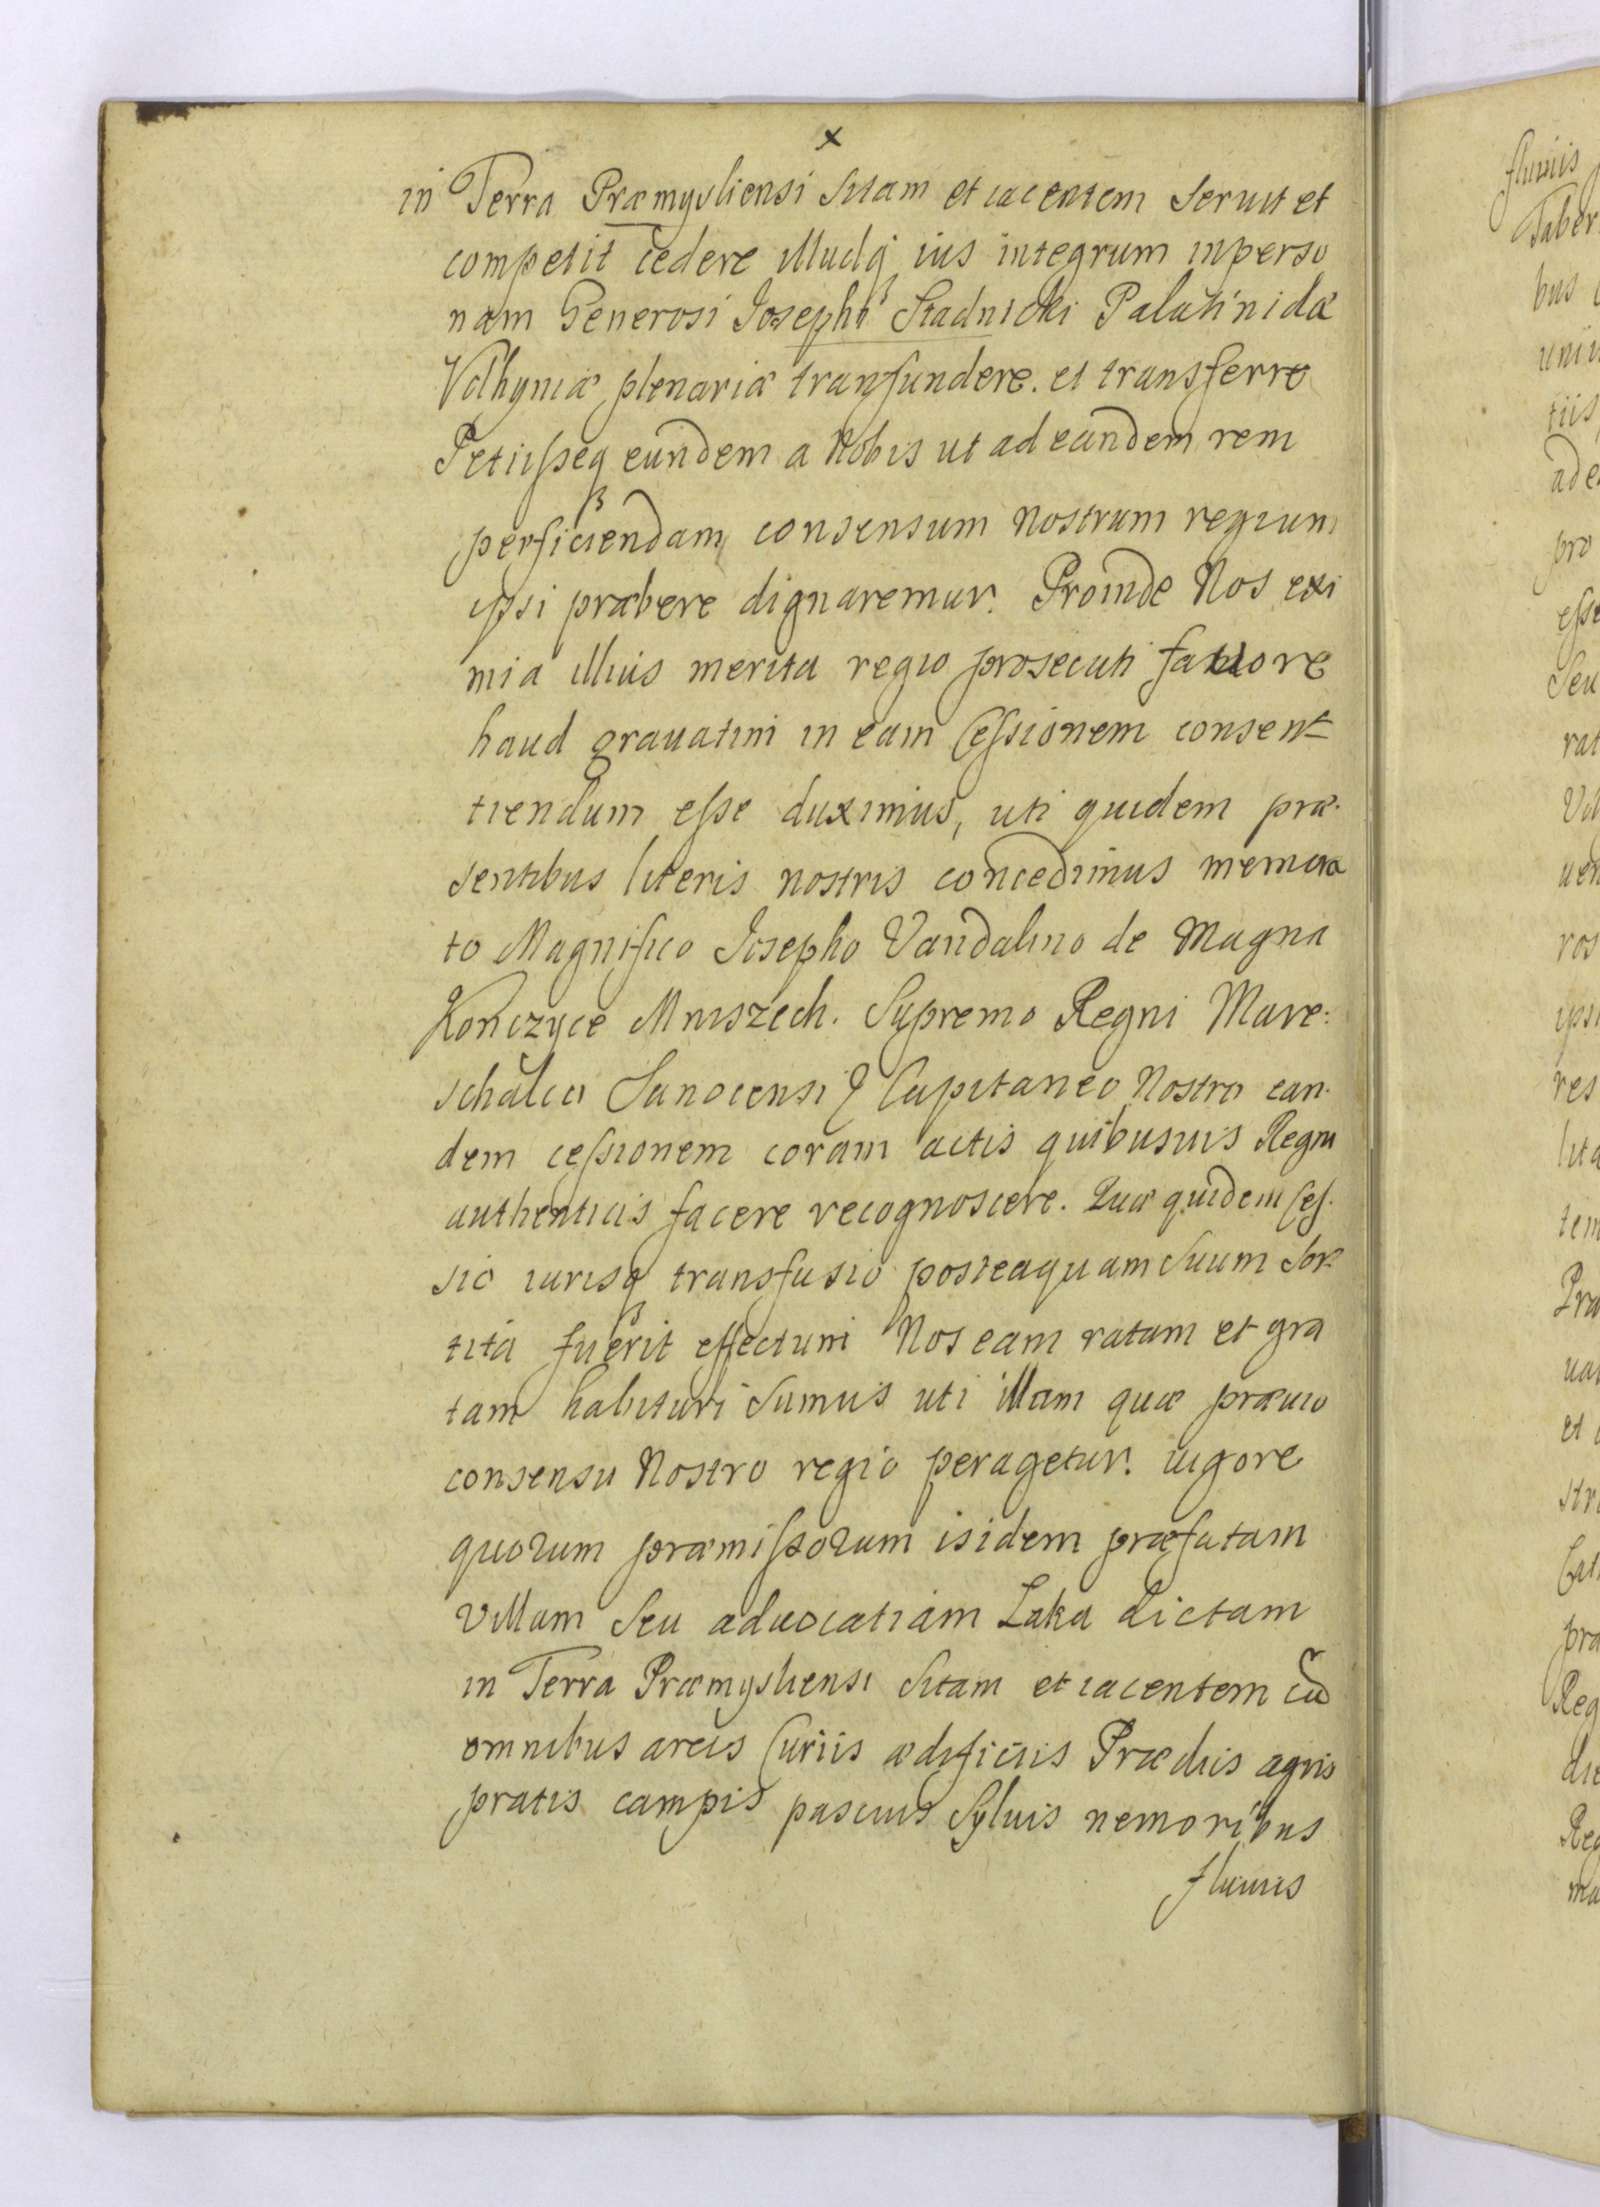 x
in Terra Præmysliensi Sitam et iacentem Seruit et
competit cedere illudq ius integrum inperso
nam Generosi Josephi Stadnicki Palatinidæ
Volhyniæ plenariæ transfundere. et transferre
Petiisseq eundem a Nobis ut ad eandem rem
perficiendam consensum Nostrum regium
ipsi præbere dignaremur. Proinde Nos exi
mia illius merita regio prosecuti fauore
haud grauatim in eam Cessionem consen
tiendum esse duximus, uti quidem præ.
sentibus literis nostris concedimus memora
to Magnifico Josepho Vandalino de Magna
Kończyce Mniszech. Supremo Regni Mare:
schalco Sanocensi Capitaneo Nostro ean.
dem cessionem coram actis quibusuis Regni
authenticis facere recognoscere. Quæ quidem Ces.
sio iurisq transfusio posteaquam Suum Sor
tita fuerit effectum Nos eam ratam et gra
tam habituri Sumus uti illam quæ præuio
consensu Nostro regio peragetur. uigore
quorum præmissorum isidem præfatam
Villam Seu aduocatiam Laka dictam
in Terra Præmysliensi Sitam et iacentem cū
omnibus areis Curiis ædificiis Prædiis agris
pratis campis pascuis Syluis nemoribus
fluuiis
fluuiis
Taber
bus
uniu
tiis
ade
pro
esse
Seu
rat
Vil
uen
ros
ipsi
res
lita
tem
Præ
uai
et
str
Cat
pra
Reg
die
Reg
ma